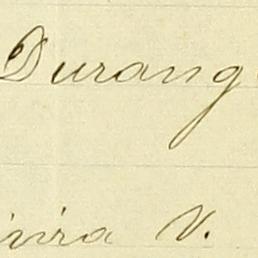 Durang
irira V.